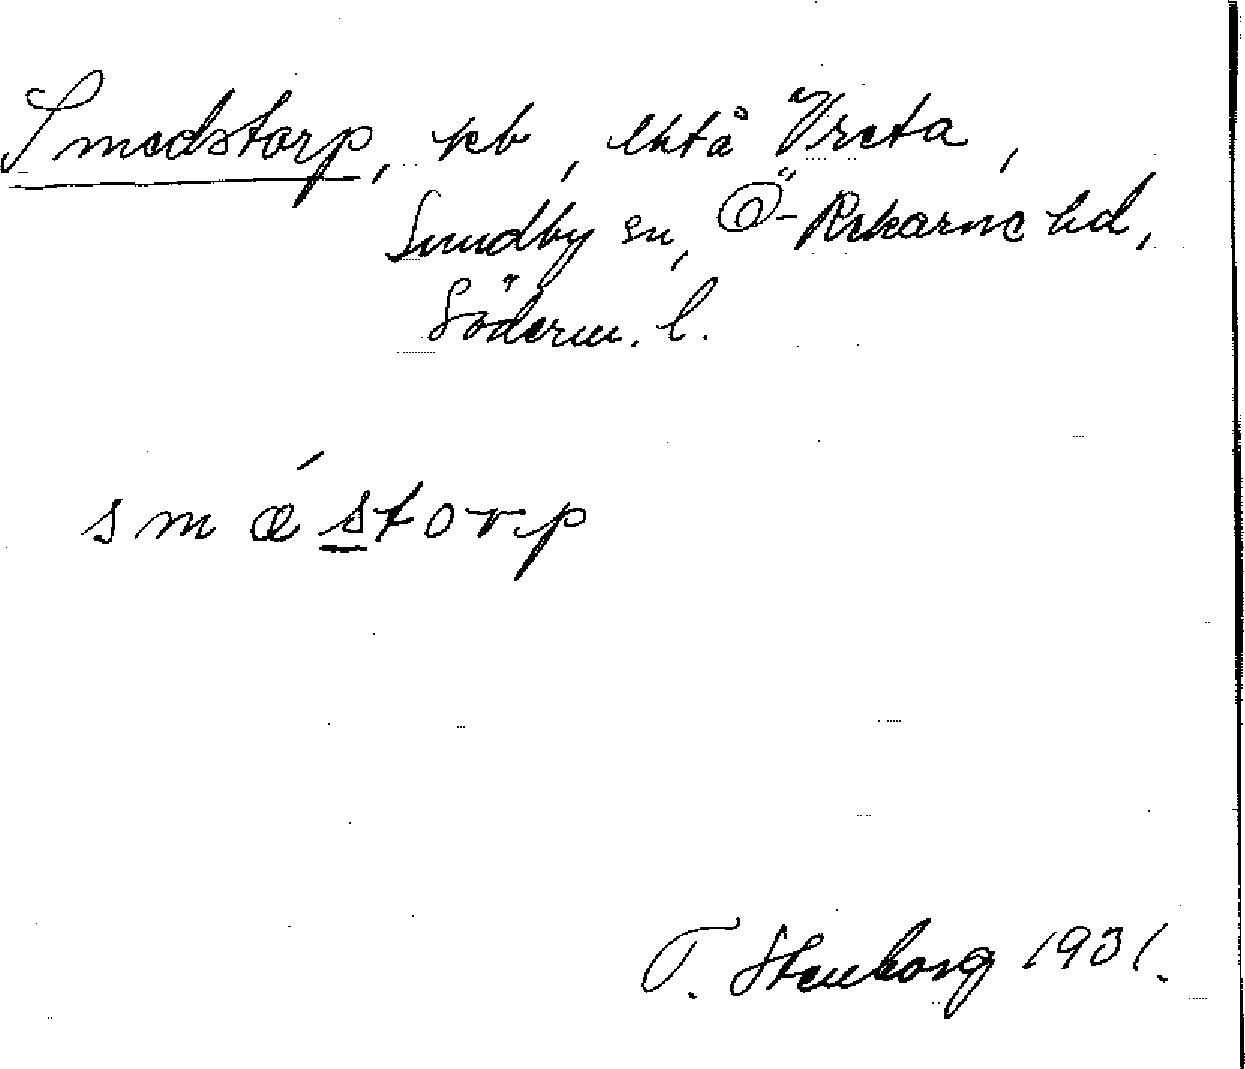 Smedstorp, kb, lht å Vreta,
Sundby sn, Ö-Rekarne hd,
Söderm. l.
smǽstorp
T. Stenborg 1931.